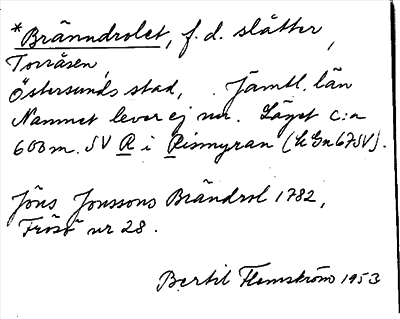 *Bränndrolet, f.d. slåtter,
Torråsen,
Östersunds stad, Jämtl. län
Namnet lever ej nu. Läget c:a
600 m. SV R i Rismyran (k Gn 67 SV).
Jöns Jonssons Brändrol 1782,
Frösö nr 28.
Bertil Flemström 1953